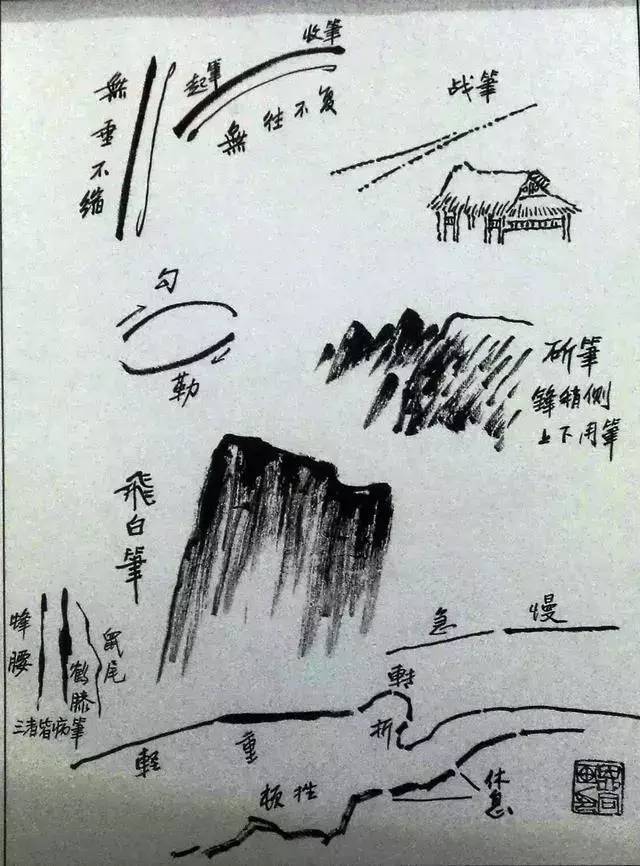 收筆
起筆
無往不复
無垂不缩
战筆
勾
勒
斫筆
鋒稍侧
上下用筆
飛白筆
蜂腰
鶴膝
鼠尾
三者皆病筆
急
慢
轉
折
輕
重
顿挫
休息